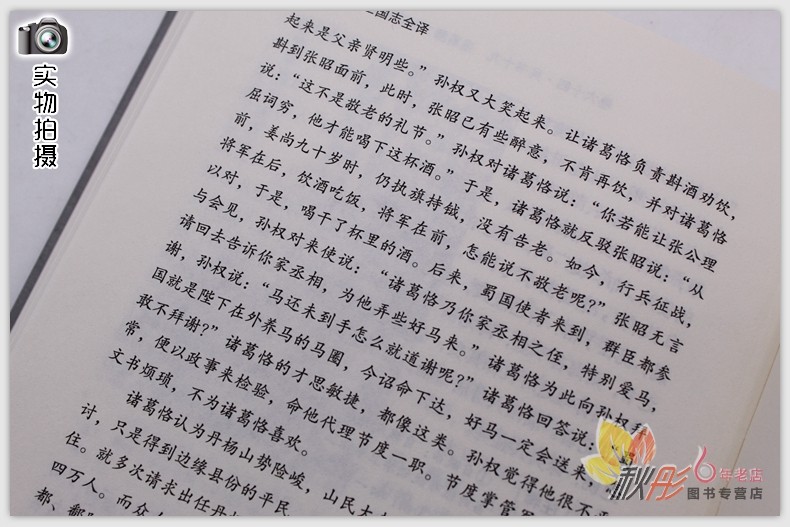 实物拍摄
国志全译
起来是父亲贤明些。”孙权又大笑起来。让诸葛恪负责斟酒劝饮，
斟到张昭面前，此时，张昭已有些醉意，不肯再饮，并对诸葛恪
说：“这不是敬老的礼节。”孙权对诸葛恪说：“你若能让张公理
屈词穷，他才能喝下这杯酒。”于是，诸葛恪就反驳张昭说：“从
前，姜尚九十岁时，仍执旗持钺，没有告老。如今，行兵征战，
将军在后，饮酒吃饭，将军在前，怎能说不敬老呢？”张昭无言
以对，于是，喝干了杯里的酒。后来，蜀国使者来到，群臣都参
与会见，孙权对来使说：“诸葛恪乃你家丞相之侄，特别爱马，
请回去告诉你家丞相，为他弄些好马来。”诸葛恪为此向孙权拜
谢，孙权说：“马还未到手怎么就道谢呢？”诸葛恪回答说：“
国就是陛下在外养马的马圈，今诏命下达，好马一定会送来，
敢不拜谢？”诸葛恪的才思敏捷，都像这类。孙权觉得他很不
常，便以政事来检验，命他代理节度一职。节度掌管军
文书烦琐，不为诸葛恪喜欢。
诸葛恪认为丹杨山势险峻，山民大
讨，只是得到边缘县份的平民
住。就多次请求出任丹
四万人。而众
都、鄱
秋彤 6年老店
图书专营店